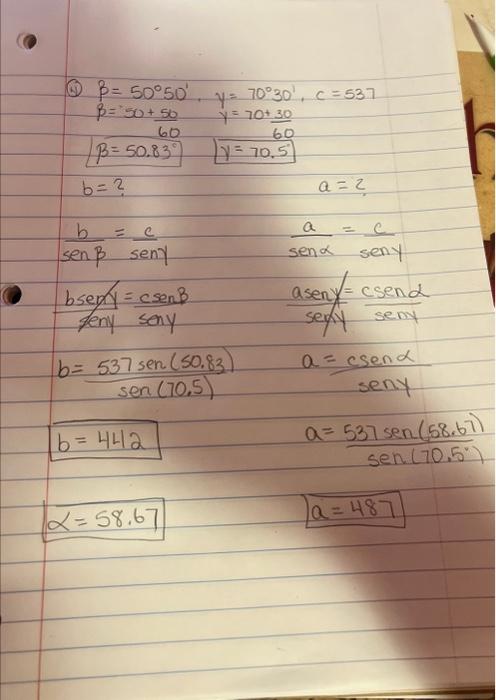 ④ β = 50°50', γ = 70°30', c = 537
β = 50 + 50/60 γ = 70 + 30/60
β = 50.83° γ = 70.5
b = ? a = ?
b/sen β = c/sen γ a/sen α = c/sen γ
b sen γ/sen γ = c sen β/sen γ a sen γ/sen γ = c sen α/sen γ
b = 537 sen (50.83)/sen (70.5) a = c sen α/sen γ
b = 442 a = 537 sen (58.67)/sen (70.5°)
α = 58.67 a = 487